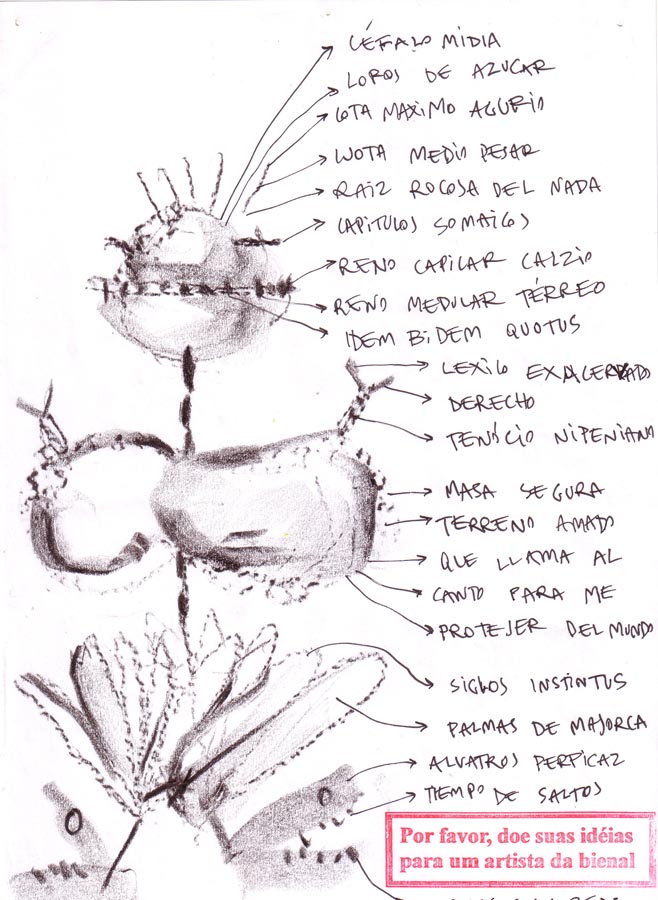 CÉFALO MIDIA
LOROS DE AZUCAR
GOTA MAXIMO AGURIO
MEDIO PESAR
RAIZ ROCOSA DEL NADA
CAPITULOS SOMAICOS
RENO CAPILAR CALZIO
RENO MEDULAR TÉRREO
IDEM BIDEM QUOTUS
LEXICO EXACERBADO
DERECHO
NIPENIANO
MASA SEGURA
TERRENO AMADO
QUE LLAMA AL
CANTO PARA ME
PROTEJER DEL MUNDO
SIGLOS INSTINTUS
PALMAS DE MAJORCA
ALVATROS PERPICAZ
TIEMPO DE SALTOS
Por favor, doe suas idéias
para um artista da bienal